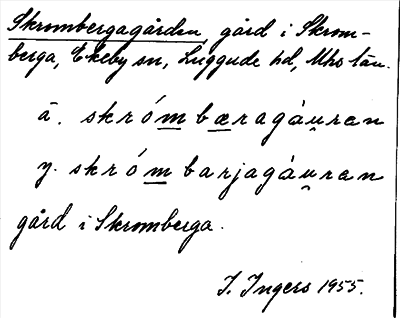 Skrombergagården, gård i Skrom-
berga, Ekeby sn, Luggude hd, Mhs län.
ä. skrómbæragáu̯ran
y. skrómbarjagáu̯ran
gård i Skromberga.
I. Ingers 1955.